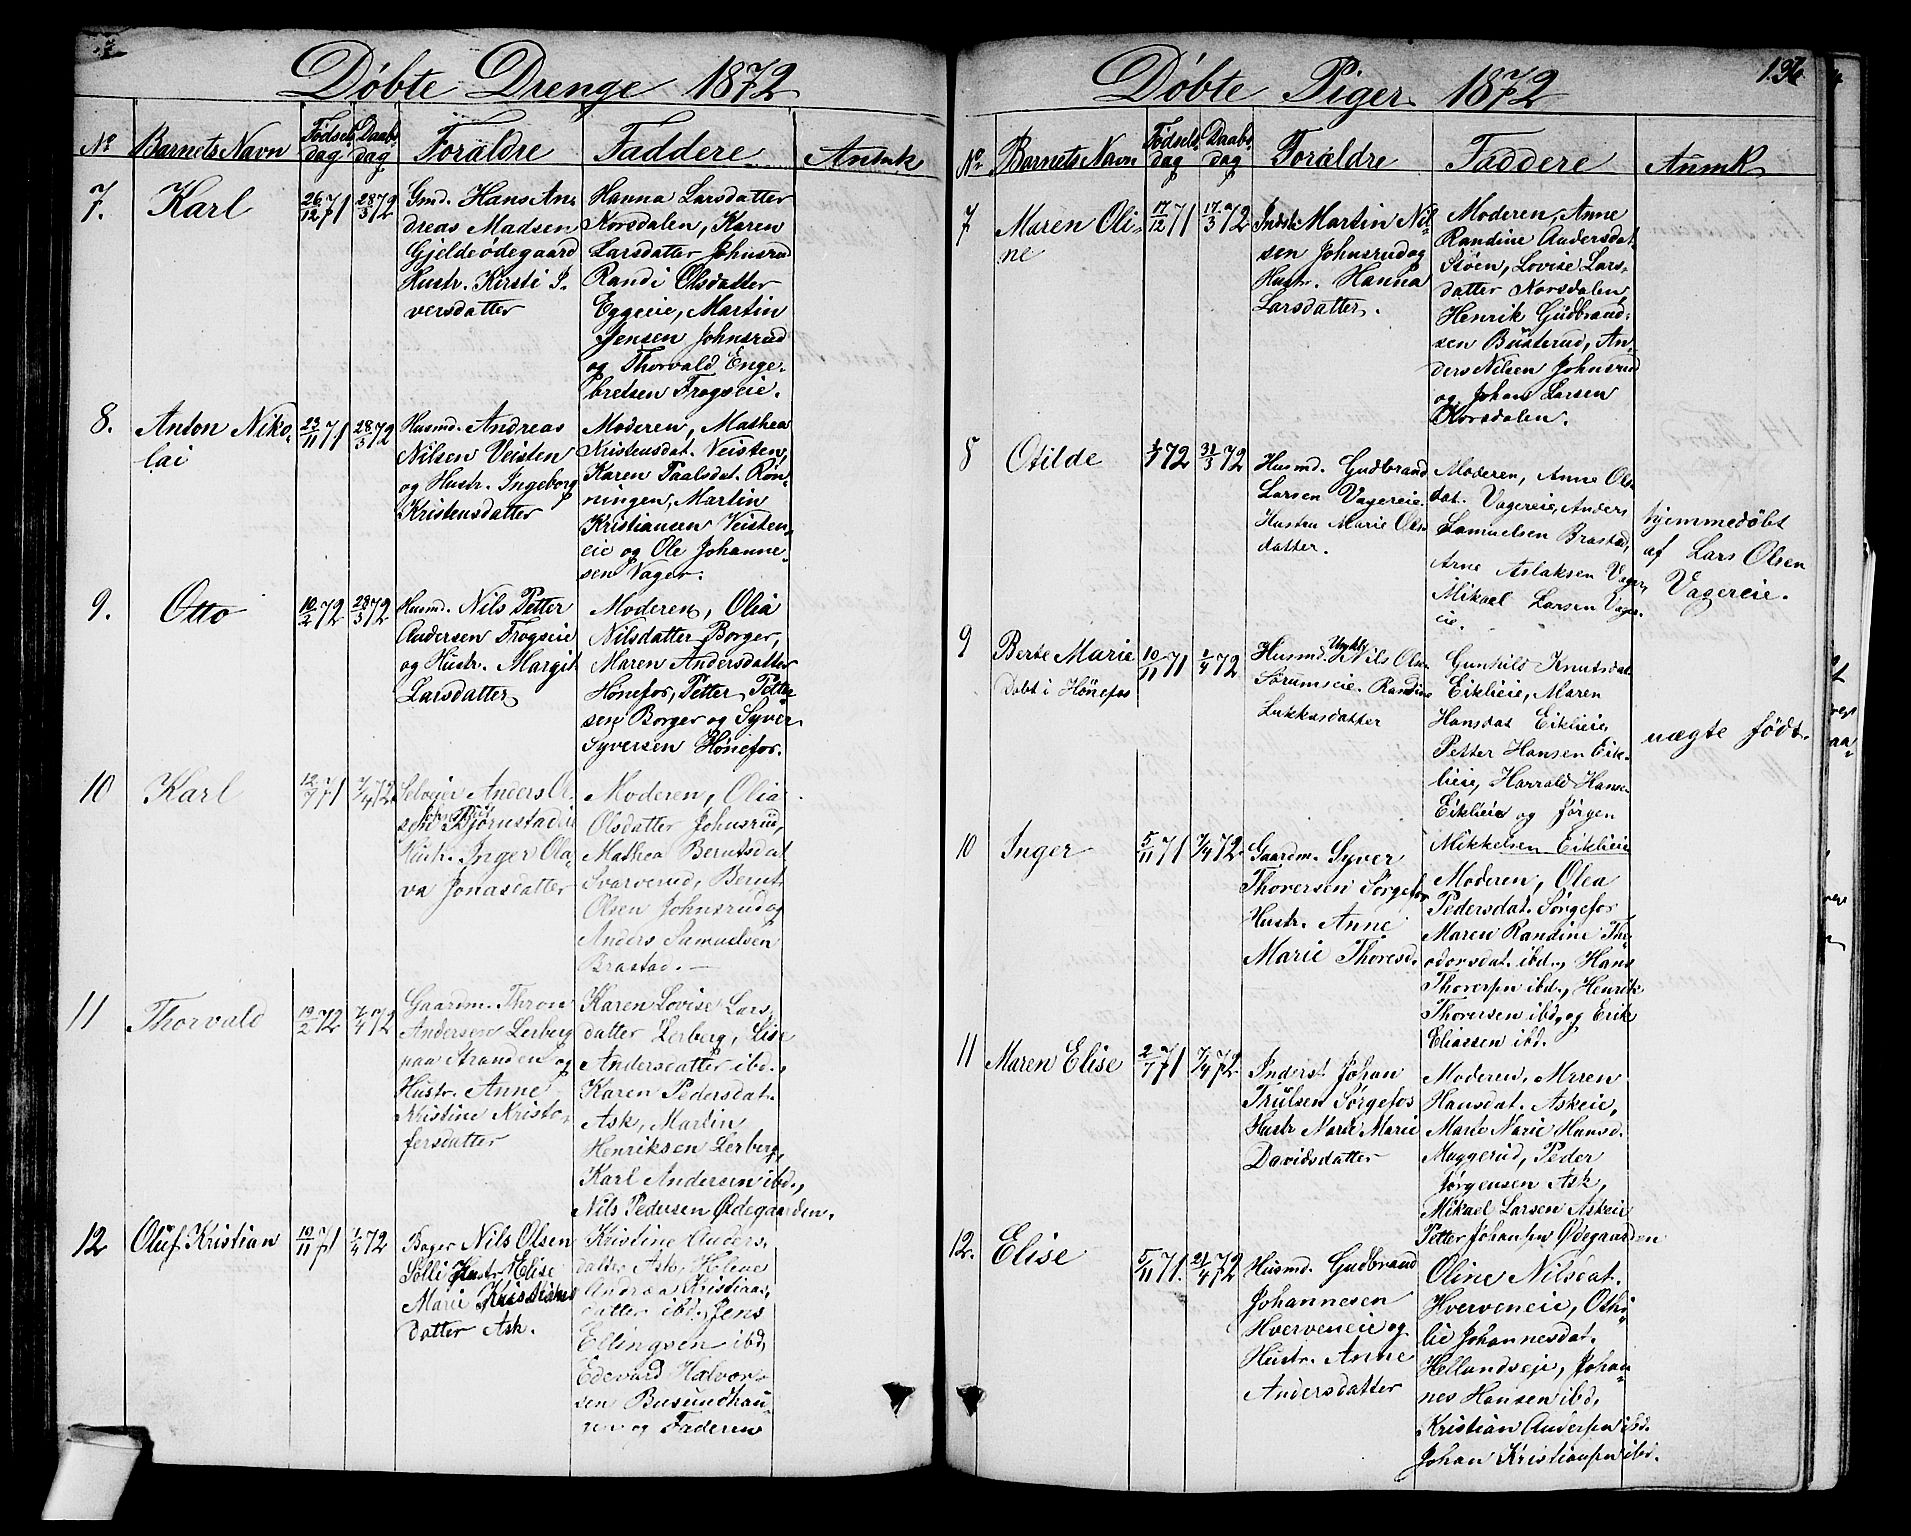 Döbte Drenge 1872
No Barnets Navn Fødsels dag Daabs dag Forældre Faddere Anmk
7. Karl 26/12 71 28/3 72
Gmd. Hans An-
dreas Madsen
Gjeldeödegaard
Hustr. Kirsti I-
versdatter
Hanna Larsdatter
Norsdalen, Karen
Larsdatter Johnsrud
Randi Olsdatter
Eggeeie, Martin
Jensen Johnsrud
og Thorvald Enge-
bretsen Frogseie.
8. Anton Niko-
lai
23/11 71 28/3 72
Husmd. Andreas
Nilsen Veisten
og Hustr. Ingeborg
Kristensdatter
Moderen, Mathea
Kristensdat. Veisten,
Karen Paalsdat. Rön-
ningen, Martin
Kristiansen Veisten-
eie og Ole Johanne-
sen Vager.
9. Otto 10/2 72 28/3 72
Husmd. Nils Petter
Andersen Frogseie
og Hustr. Margit
Larsdatter
Moderen, Olia
Nilsdatter Borger,
Maren Andersdatter
Hönefos, Petter Petter-
sen Borger og Syver
Syversen Hönefos.
10 Karl 12/7 71 7/4 72
Selveier Anders Ol-
sen Björnstadeie
Hustr. Inger Ola-
va Jonasdatter
Moderen, Olia
Olsdatter Johnsrud,
Mathea Berntsdat
Svarverud, Bernt
Olsen Johnsrud og
Anders Samuelsen
Brastad. —
11 Thorvald 19/2 72 7/4 72
Gaardm. Thron
Andersen Lerberg
paa Stranden og
Hustr. Anne
Kristine Kristo-
fersdatter
Karen Lovise Lars-
datter Lerberg, Lise
Andersdatter ibd.,
Karen Pedersdat.
Ask, Martin
Henriksen Lerberg,
Karl Andersen ibd.,
Nils Pedersen Ødegaarden.
12 Oluf Kristian 10/11 71 7/4 72
Bager Nils Olsen
Solli Hustr. Elise
Marie Kristians
datter Ask.
Kristine Anders-
datter Ask, Helene
Andrea Kristians-
datter ibd., Jens
Ellingsen ibd,
Edevard Halvor-
sen Busundhau-
gen og Faderen
Döbte Piger 1872
No. Barnets Navn Fødsels dag Daabs dag Forældre Faddere Anmk
7 Maren Oli-
ne
17/12 71 17/3 72
Indst. Martin Nil-
sen Johnsrud og
Hustr. Hanna
Larsdatter.
Moderen, Anne
Randine Andersdat.
Stöen, Lovise Lars-
datter Norsdalen
Henrik Gudbrand-
sen Busterud, An-
ders Nilsen Johnsrud
og Johans Larsen
Norsdalen.
8 Otilde 1/1 72 31/3 72
Husmd. Gudbrand
Larsen Vagereie
Hustru Marie Ols-
datter.
Moderen, Anne Ols-
dat. Vagereie, Anders
Samuelsen Brastad,
Arne Aslaksen Vager,
Mikael Larsen Vager-
eie.
hjemmedöbt
af Lars Olsen
Vagereie.
9 Berte Marie
Døbt i Hönefos
10/11 71 1/4 72
Husmd. Ungkl. Nils Ols-
Sörumseie. Randine
Lukkasdatter
Gunhild Knutsdat
Eiklieie, Maren
Hansdat Eiklieie,
Petter Hansen Eik-
lieie, Harrald Hans-
Eiklieie og Jörgen
Mikkelsen Eiklieie
uægte födt.
10 Inger 5/11 71 7/4 72.
Gaardm. Syver
Thoversen Sörgefos
Hustr. Anne
Marie Thoresd.
Moderen, Olea
Pedersdat. Sörgefos
Maren Randine The-
odorsdat. ibd., Hans
Thoversen ibd., Henrik
Thoversen ibd, og Erik
Eliassen ibd.
11 Maren Elise 2/7 71 7/4 72.
Inderst Johan
Trulsen Sörgefos
Hustr Marie Marie
Davidsdatter
Moderen, Maren
Hansdat. Askeie,
Marte Marie Hansd.
Muggerud, Peder
Jörgensen Ask,
Mikael Larsen Askeie
Petter Johansen Ødegaarden
12. Elise 5/11 71. 21/4 72
Husmd. Gudbrand
Johannesen
Hverveneie og
Hustr. Anne
Andersdatter
Oline Nilsdat.
Hverveneie, Othi-
lie Johannesdat.
Hellandseie, Johan-
nes Hansen ibd,
Kristian Andersen ibd.
Johan Kristiansen ibd.